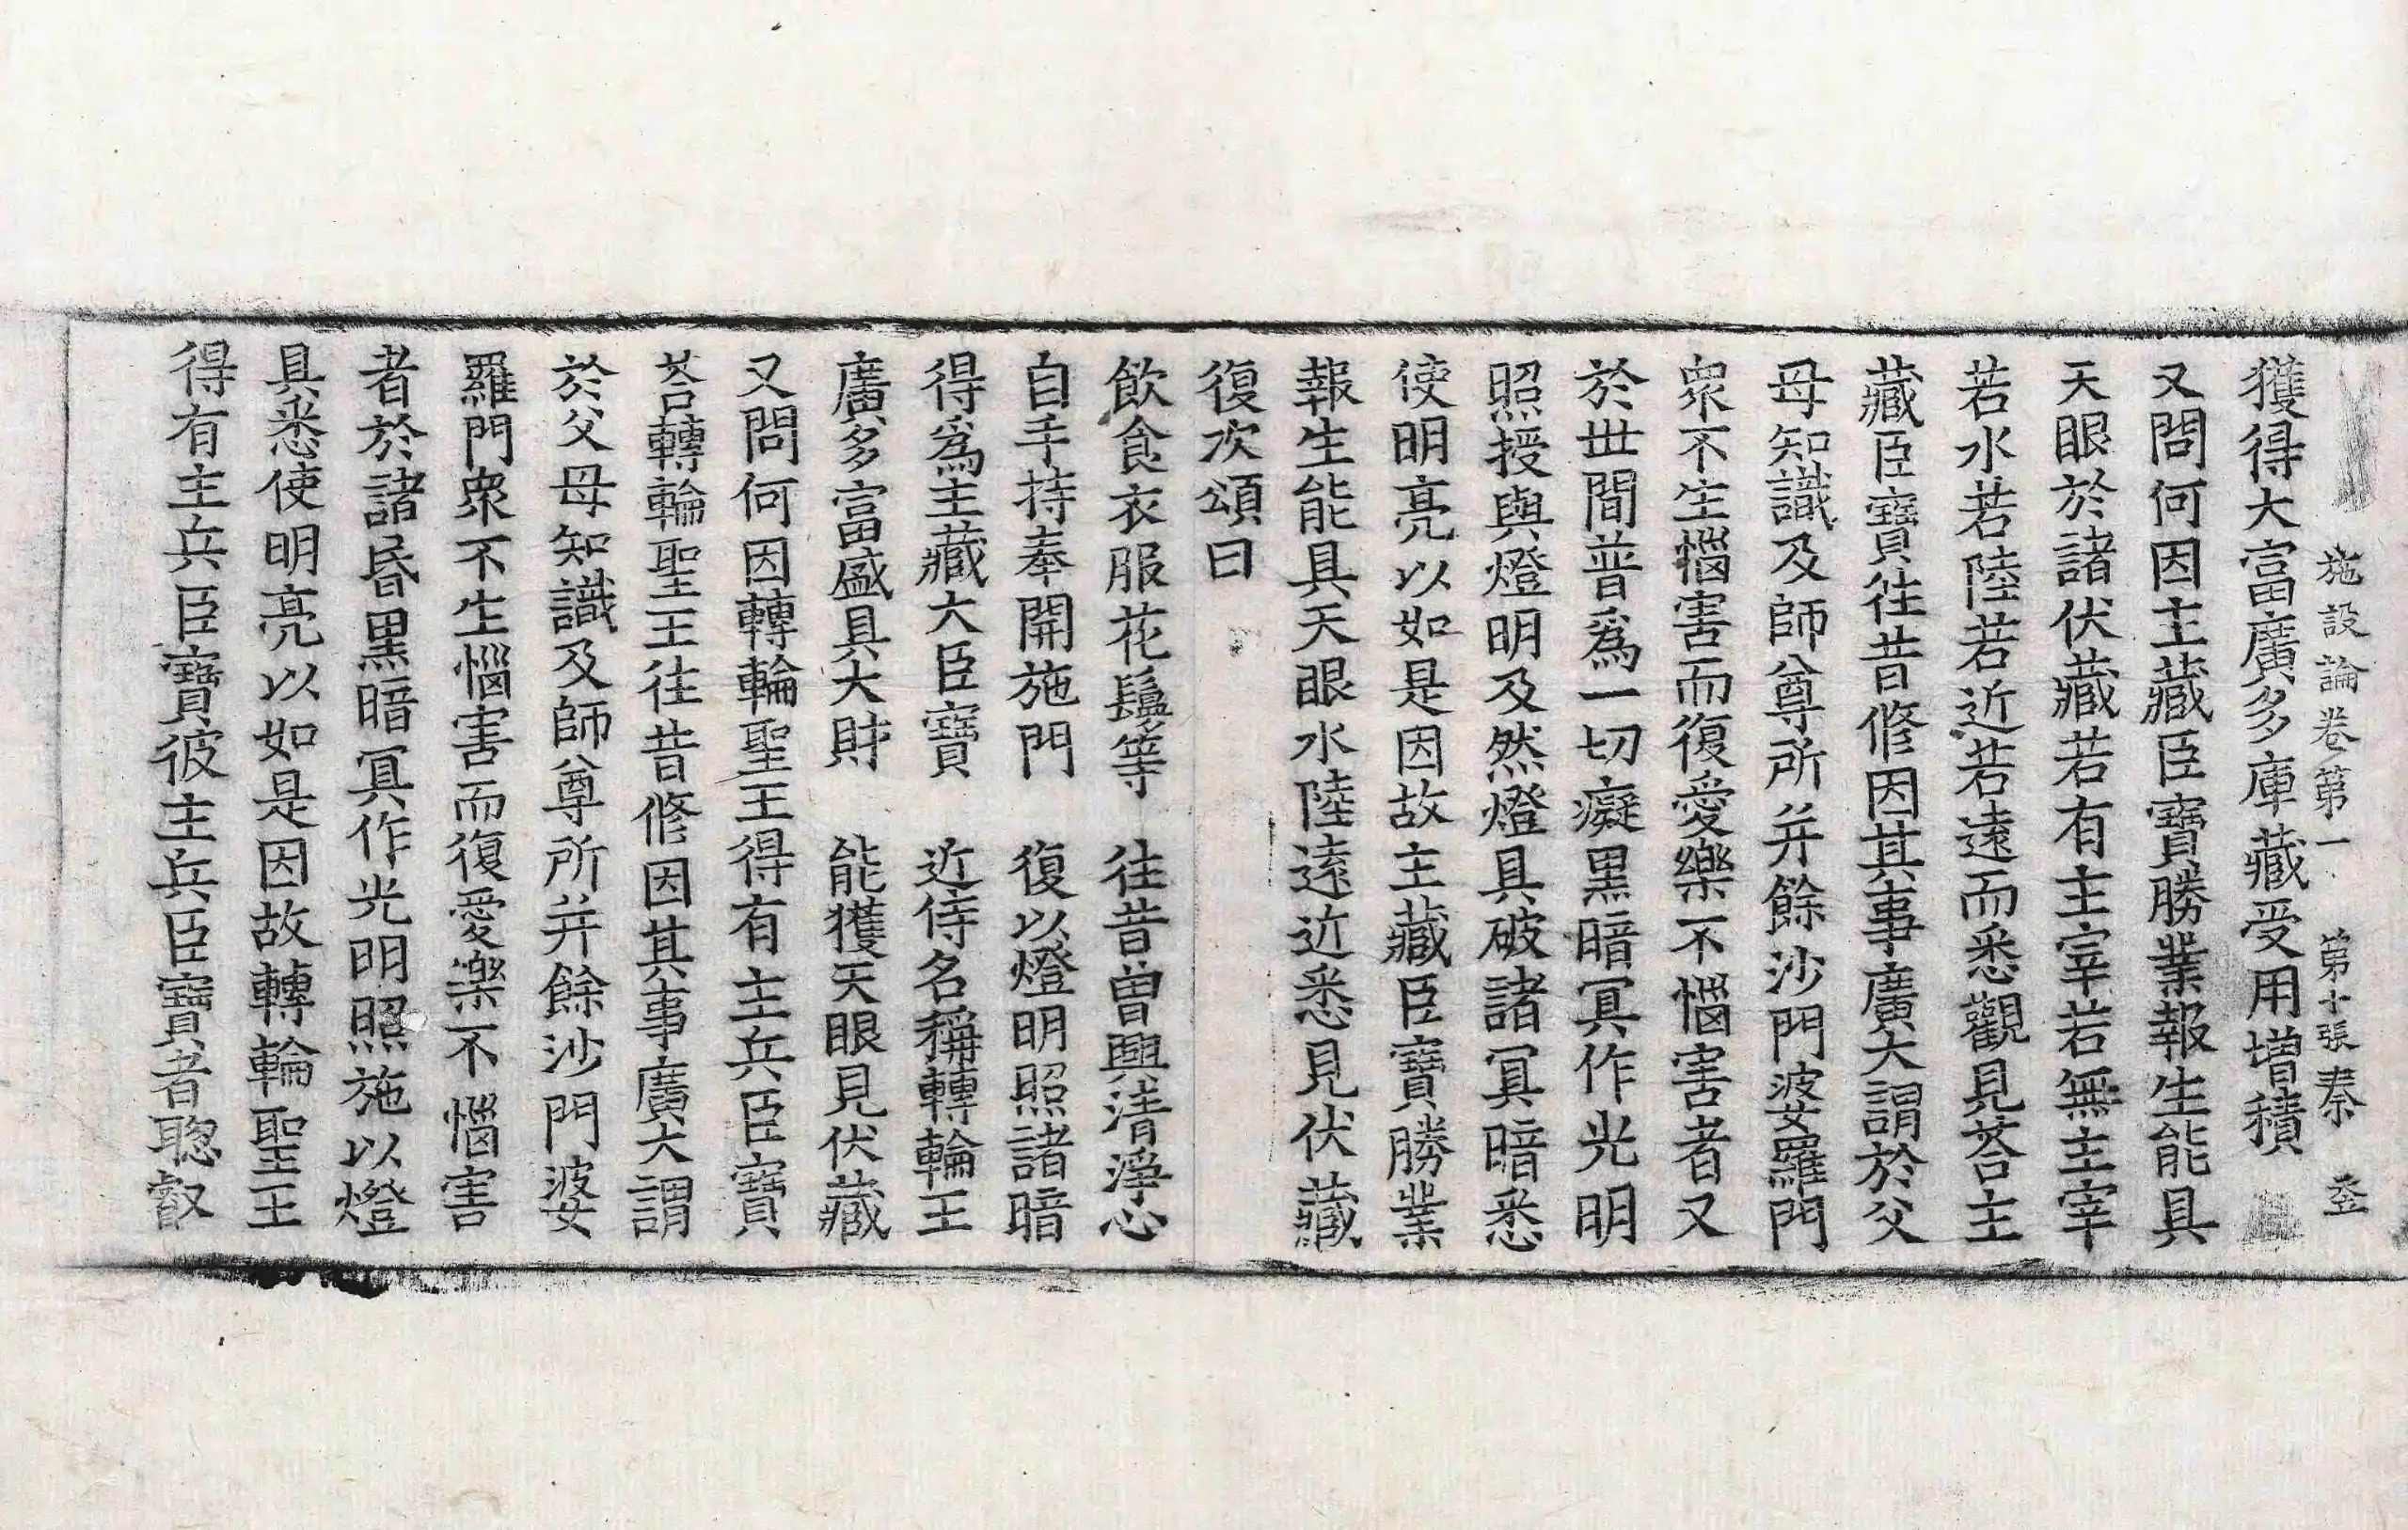 施設論卷第一 第十張 秦
獲得大富廣多庫藏受用增積
又問何因主藏臣寶勝業報生能具
天眼於諸伏藏若有主宰若無主宰
若水若陸若近若遠而悉觀見荅主
藏臣寶往昔修因其事廣大謂於父
母知識及師尊所并餘沙門婆羅門
衆不生惱害而復愛樂不惱害者又
於世間普爲一切癡黑暗冥作光明
照授與燈明及然燈具破諸冥暗悉
使明亮以如是因故主藏臣寶勝業
報生能具天眼水陸遠近悉見伏藏
復次頌曰
飲食衣服花鬘等 往昔曾興清淨心
自手持奉開施門 復以燈明照諸暗
得爲主藏大臣寶 近侍名稱轉輪王
廣多富盛具大財 能獲天眼見伏藏
又問何因轉輪聖王得有主兵臣寶
荅轉輪聖王往昔修因其事廣大謂
於父母知識及師尊所并餘沙門婆
羅門衆不生惱害而復愛樂不惱害
者於諸昬黑暗冥作光明照施以燈
具悉使明亮以如是因故轉輪聖王
得有主兵臣寶彼主兵臣寶者聦叡